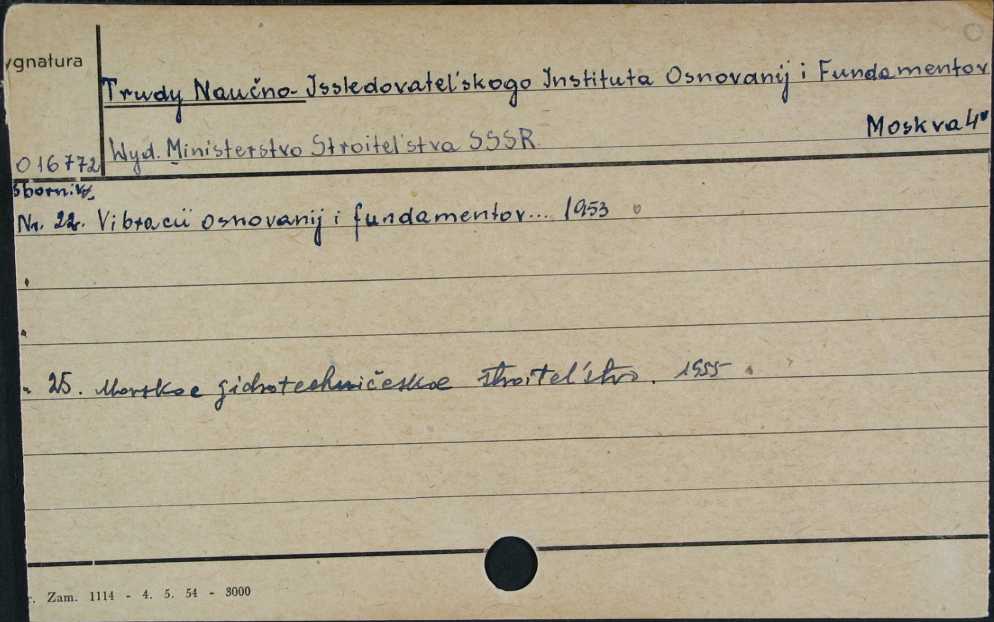 ygnatura
Trudy Naučno-Issledovatel'skogo Instituta Osnovanij i Fundamentov
Moskva 4°
016772 Wyd. Ministerstvo Stroitel'stva SSSR
Sbornik
Nr. 22. Vibracii osnovanij i fundamentov... 1953
" 25. Morskoe gidrotechničeskoe stroitel'stvo. 1955
r. Zam. 1114 - 4. 5. 54 - 3000